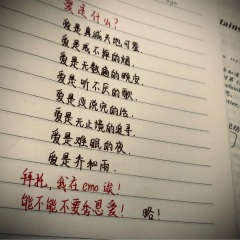 爱是什么?
爱是真诚天地可鉴,
爱是戒不掉的烟,
爱是无数痛的晚安,
爱是听不厌的歌,
爱是没说完的话,
爱是无止境的追寻,
爱是难眠的夜,
爱是乔和雨.
拜托,我在emo诶!
能不能不要秀恩爱! 略!